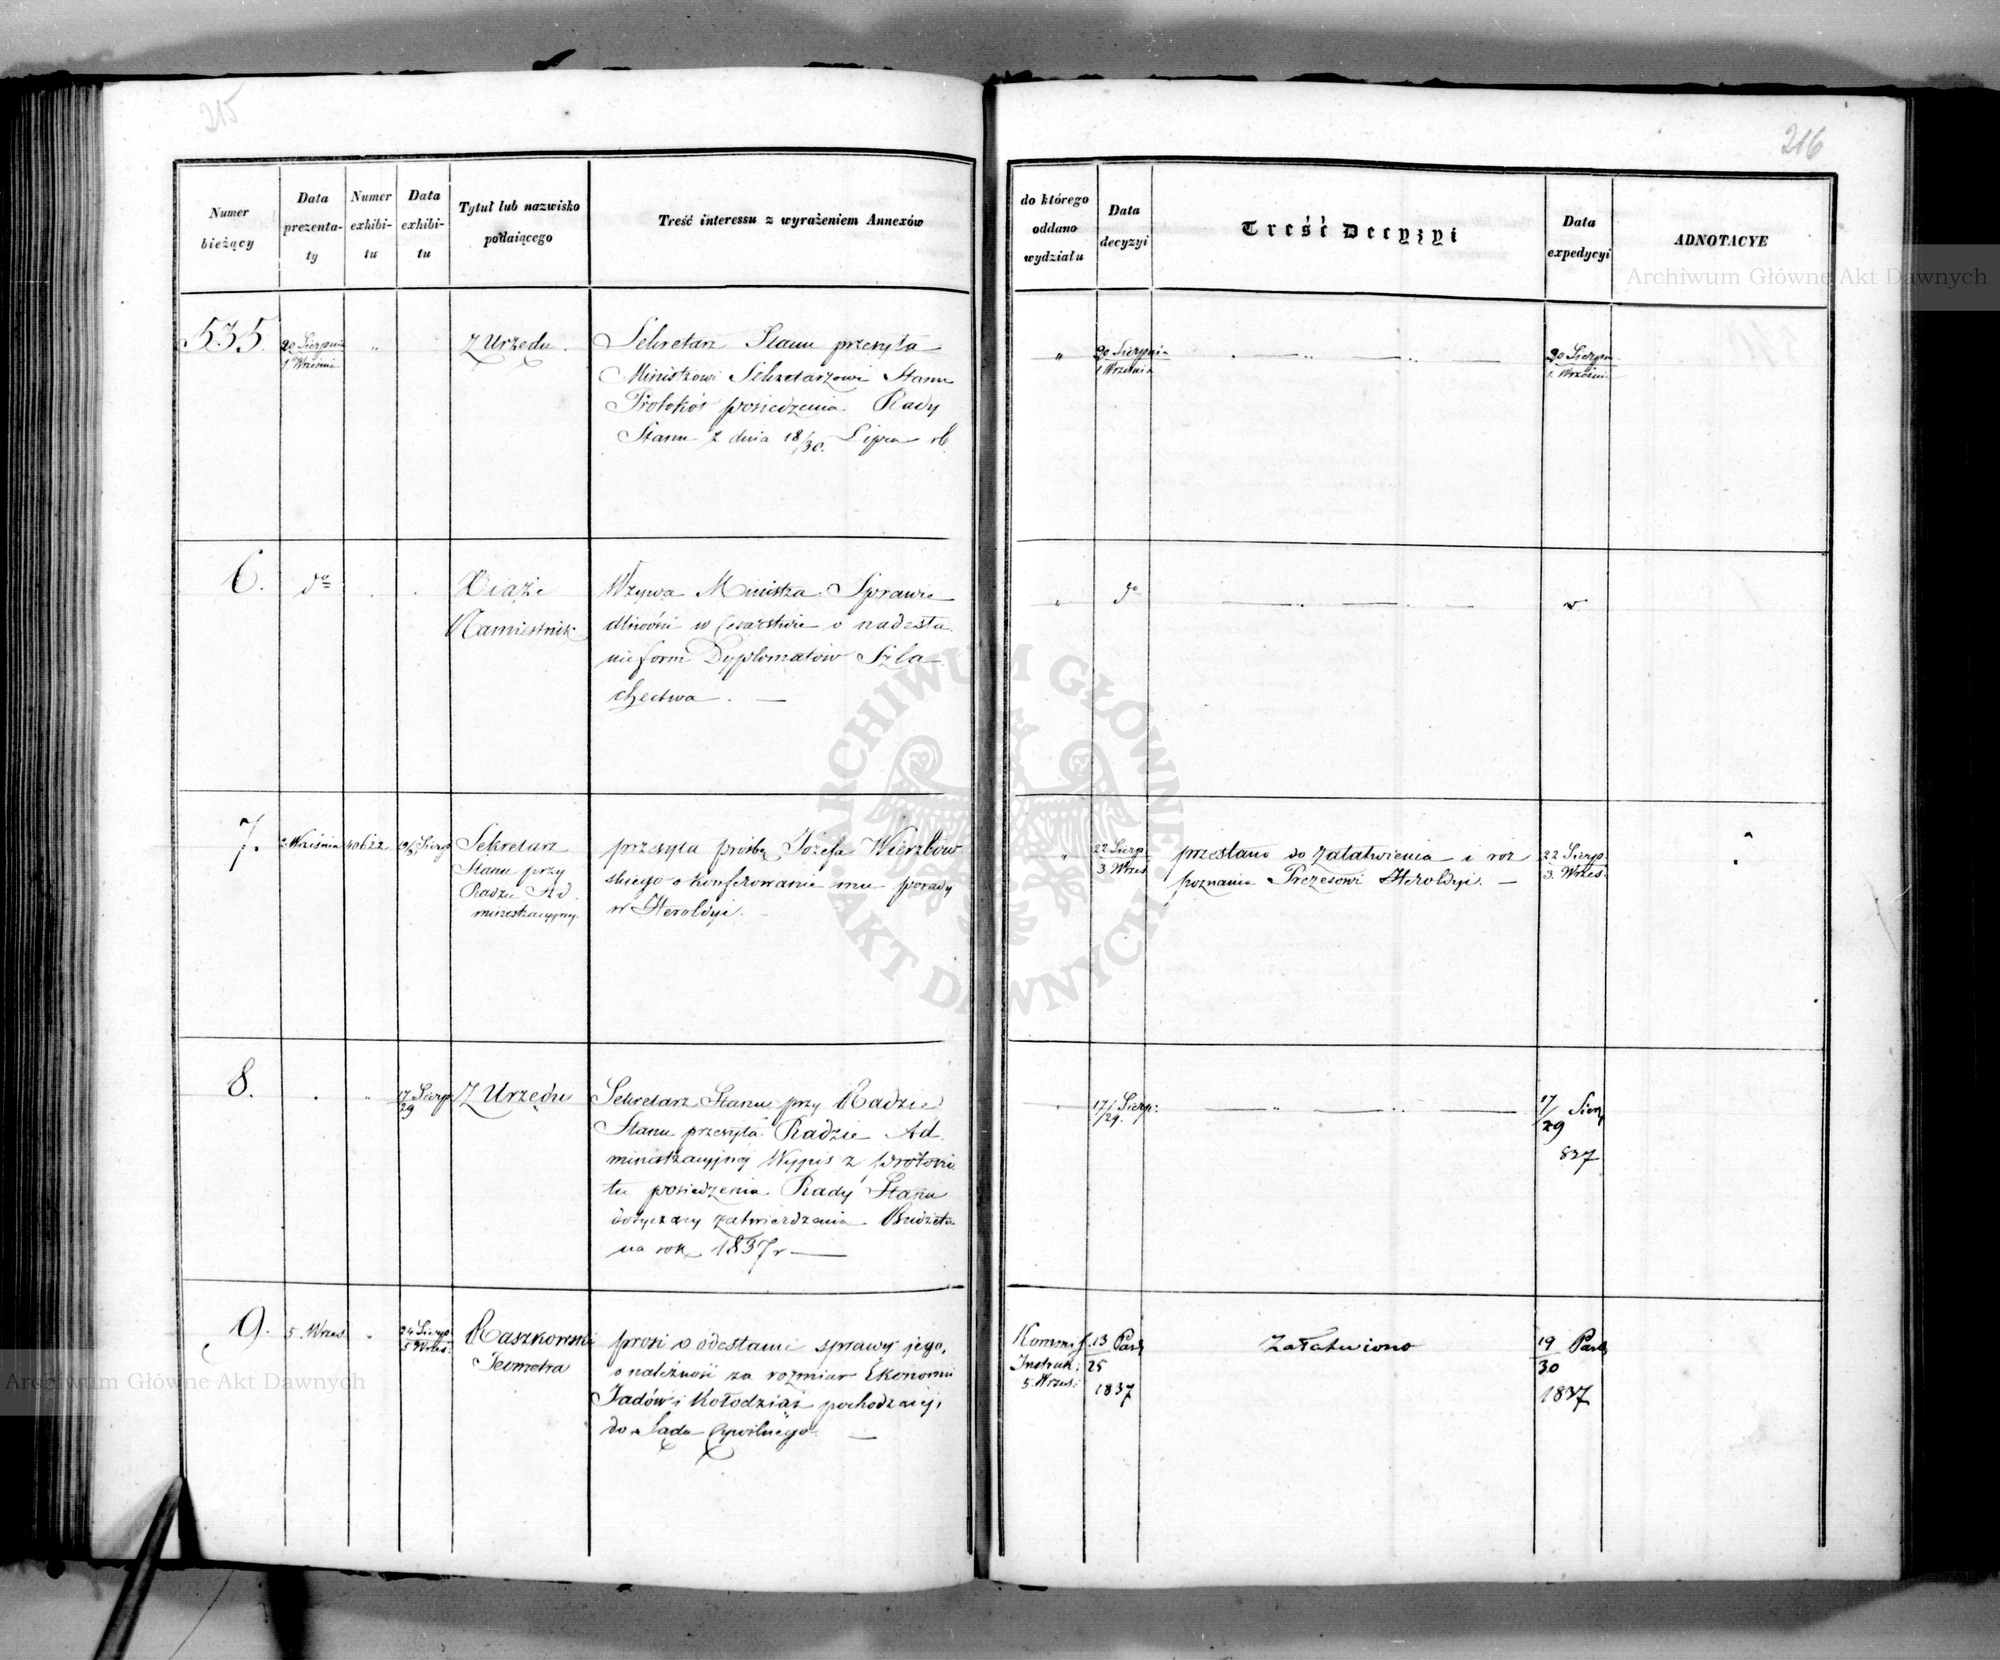 215
216
Numer bieżący
Data prezentaty
Numer exhibitu
Data exhibitu
Tytuł lub nazwisko podaiącego
Treść interessu z wyrażeniem Annexów
do którego oddano wydziału
Data decyzyi
Treść Decyzyi
Data expedycyi
ADNOTACYE
535.
20 Sierpnia
1 Września
Z Urzedu.
Sekretarz Stanu przesyła
Ministrowi Sekretarzowi Stanu
Protokół posiedzenia Rady
Stanu z dnia 18/30. Lipca rb
20 Sierpnia
1 Września
20 Sierpn
1. Wrześni
6.
do
Xiąże
Namiestnik
Wzywa Ministra Sprawie
dliwości w Cesarstwie o nadesła
nie form Dyplomatów Szla
chectwa. —
do
7.
2 Września
40622
19/31 Sierp
Sekretarz
Stanu przy
Radzie Ad
ministracyjnej.
przesyła prośbę Józefa Wierzbow
skiego o konferowanie mu posady
w Heroldyi.
22 Sierp.
3 Wrześ
przesłano do załatwienia i roz
poznania Prezesowi Heroldyi. —
22 Sierp.
3. Wrześ.
8.
17 Sierp
29
Z Urzędu
Sekretarz Stanu przy Radzie
Stanu przesyła Radzie Ad
ministracyjnej Wypis z Protoku
łu posiedzenia Rady Stanu
dotyczący zatwierdzenia Budżetu
na rok 1837 r —
17/29. Sierp:
17/29 Sierp
837
9.
5. Wrześ
24 Sierp.
5 Wrześ.
Raszkowski
Jeometra
prosi o odesłanie sprawy jego,
o należność za rozmiar Ekonomii
Jadów i Kołodziąż pochodzącej,
do Sądu Cywilnego. —
Kommis.
Instruk:
5. Wrześ:
13 Paźd
25
1837
Załatwiono
19 Paźd
30
1837
Archiwum Główne Akt Dawnych
Archiwum Główne Akt Dawnych
ARCHIWUM GŁÓWNE AKT DAWNYCH